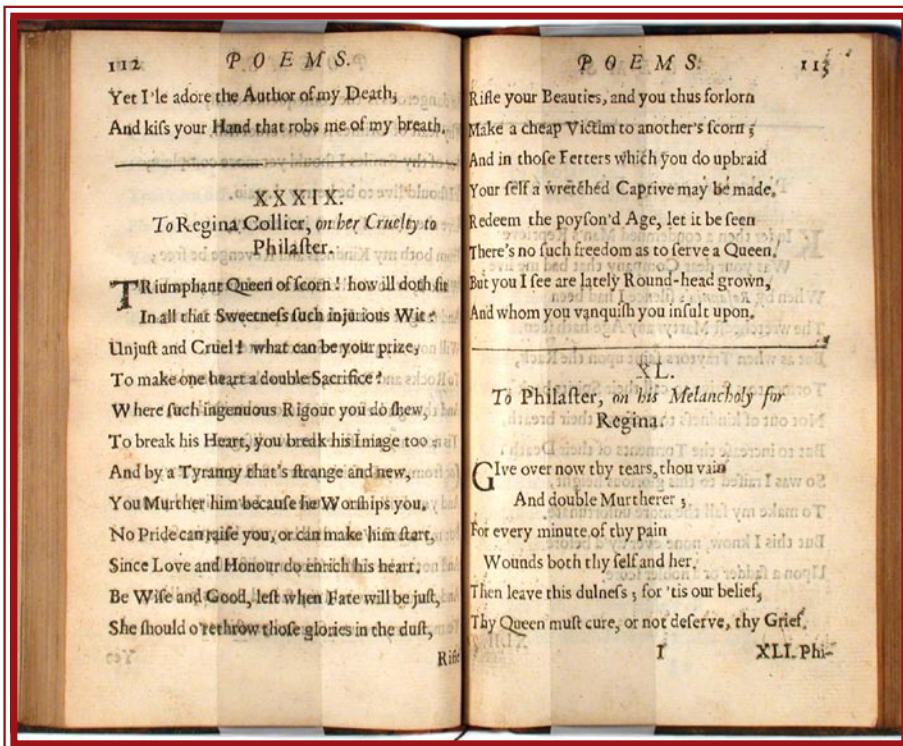 112 POEMS.
Yet I'le adore the Author of my Death,
And kiſs your Hand that robs me of my breath.
XXXIX.
To Regina Collier, on her Cruelty to
Philaſter.
TRiumphant Queen of ſcorn! how ill doth ſit
In all that Sweetneſs ſuch injurious Wit?
Unjuſt and Cruel! what can be your prize,
To make one heart a double Sacrifice?
Where ſuch ingenuous Rigour you do ſhew,
To break his Heart, you break his Image too;
And by a Tyranny that's ſtrange and new,
You Murther him becauſe he Worſhips you.
No Pride can raiſe you, or can make him ſtart,
Since Love and Honour do enrich his heart.
Be Wiſe and Good, leſt when Fate will be juſt,
She ſhould o'rethrow thoſe glories in the duſt,
Rifle
POEMS. 113
Rifle your Beauties, and you thus forlorn
Make a cheap Victim to another's ſcorn;
And in thoſe Fetters which you do upbraid
Your ſelf a wretched Captive may be made.
Redeem the poyſon'd Age, let it be ſeen
There's no ſuch freedom as to ſerve a Queen.
But you I ſee are lately Round-head grown,
And whom you vanquiſh you inſult upon.
XL.
To Philaſter, on his Melancholy for
Regina.
GIve over now thy tears, thou vain
And double Murtherer;
For every minute of thy pain
Wounds both thy ſelf and her.
Then leave this dulneſs; for 'tis our belief,
Thy Queen muſt cure, or not deſerve, thy Grief.
I XLI. Phi-